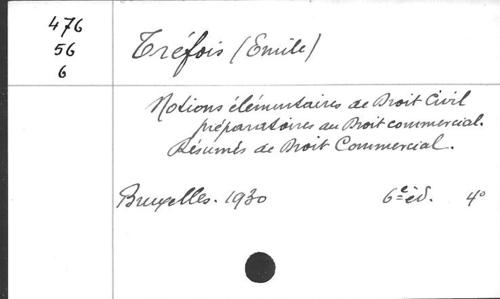 476
56
6
Tréfois (Emile)
Notions élémentaires de Droit Civil
préparatoires au Droit commercial.
Résumés de Droit Commercial.
Bruxelles. 1930 6e éd. 4º